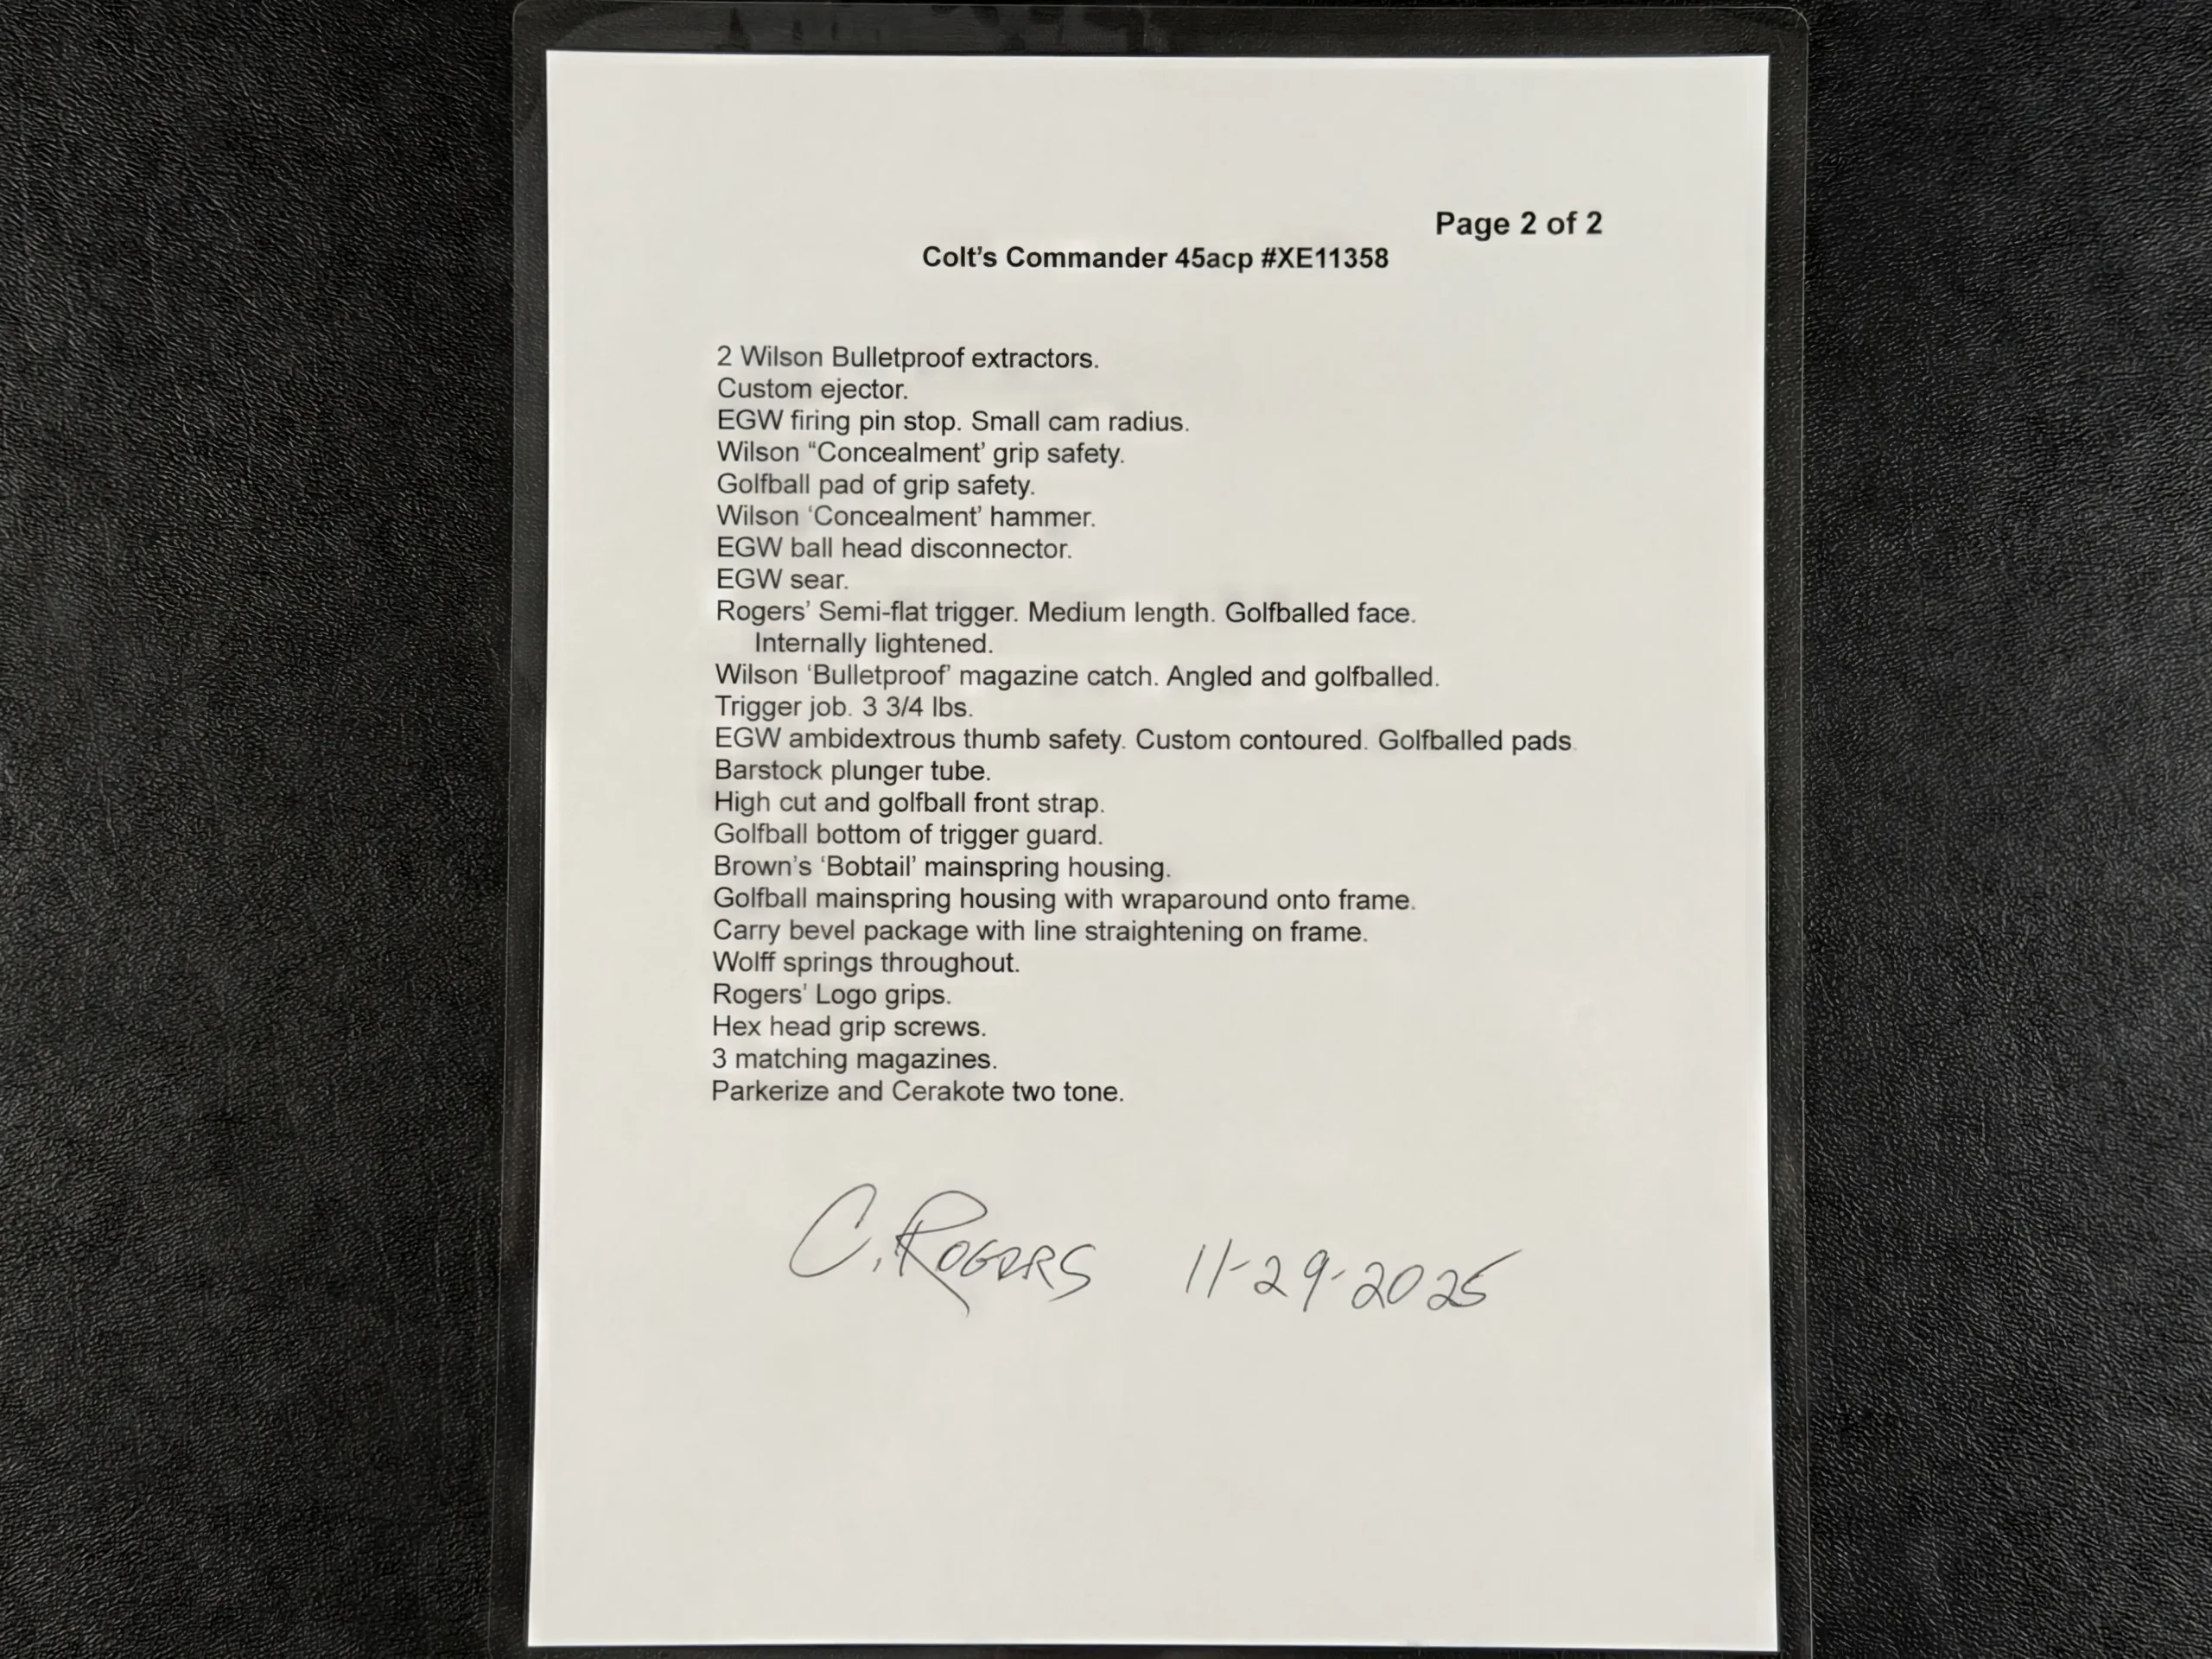 Page 2 of 2
Colt’s Commander 45acp #XE11358
2 Wilson Bulletproof extractors.
Custom ejector.
EGW firing pin stop. Small cam radius.
Wilson “Concealment’ grip safety.
Golfball pad of grip safety.
Wilson ‘Concealment’ hammer.
EGW ball head disconnector.
EGW sear.
Rogers’ Semi-flat trigger. Medium length. Golfballed face.
Internally lightened.
Wilson ‘Bulletproof’ magazine catch. Angled and golfballed.
Trigger job. 3 3/4 lbs.
EGW ambidextrous thumb safety. Custom contoured. Golfballed pads.
Barstock plunger tube.
High cut and golfball front strap.
Golfball bottom of trigger guard.
Brown’s ‘Bobtail’ mainspring housing.
Golfball mainspring housing with wraparound onto frame.
Carry bevel package with line straightening on frame.
Wolff springs throughout.
Rogers’ Logo grips.
Hex head grip screws.
3 matching magazines.
Parkerize and Cerakote two tone.
C. ROGERS 11-29-2025